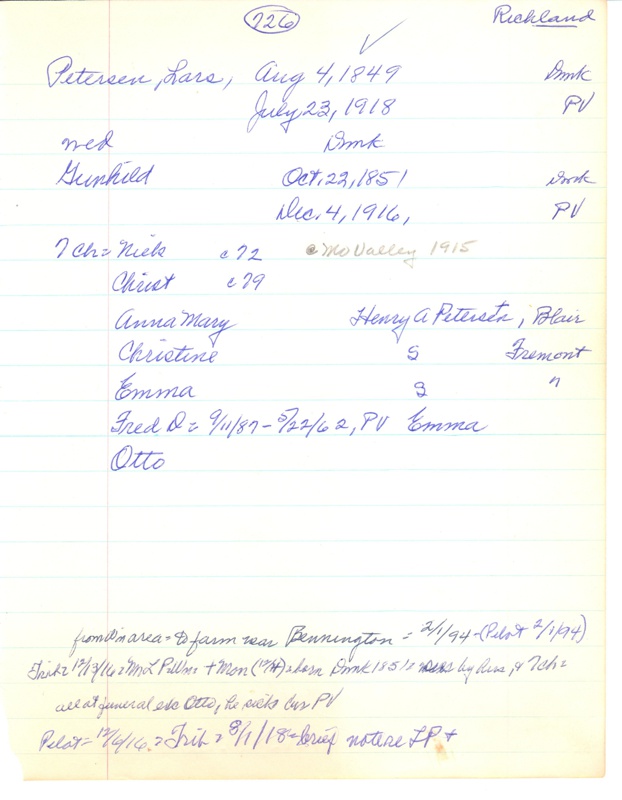 726 Richland
✓
Petersen, Lars, Aug 4, 1849 Dmk
July 23, 1918 PV
wed Dmk
Gunhild Oct. 22, 1851 Dmk
Dec. 4, 1916, PV
7 Ch = Niels c72 c MoValley 1915
Christ c79
Anna Mary Henry A Petersen, Blair
Christine S Fremont
Emma S "
Fred D = 9/11/87 - 5/22/62, PV Emma
Otto
from area = to farm near Bennington = 2/1/94 - (Pilot 2/1/94)
Trib = 12/13/16 = Mrs L P Mon born Dmk 1851 = by hus, & 7 ch =
all at funeral exc Otto, he sick bur PV
Pilot = 12/6/16 = Trib = 8/1/18 = brief notice LP +